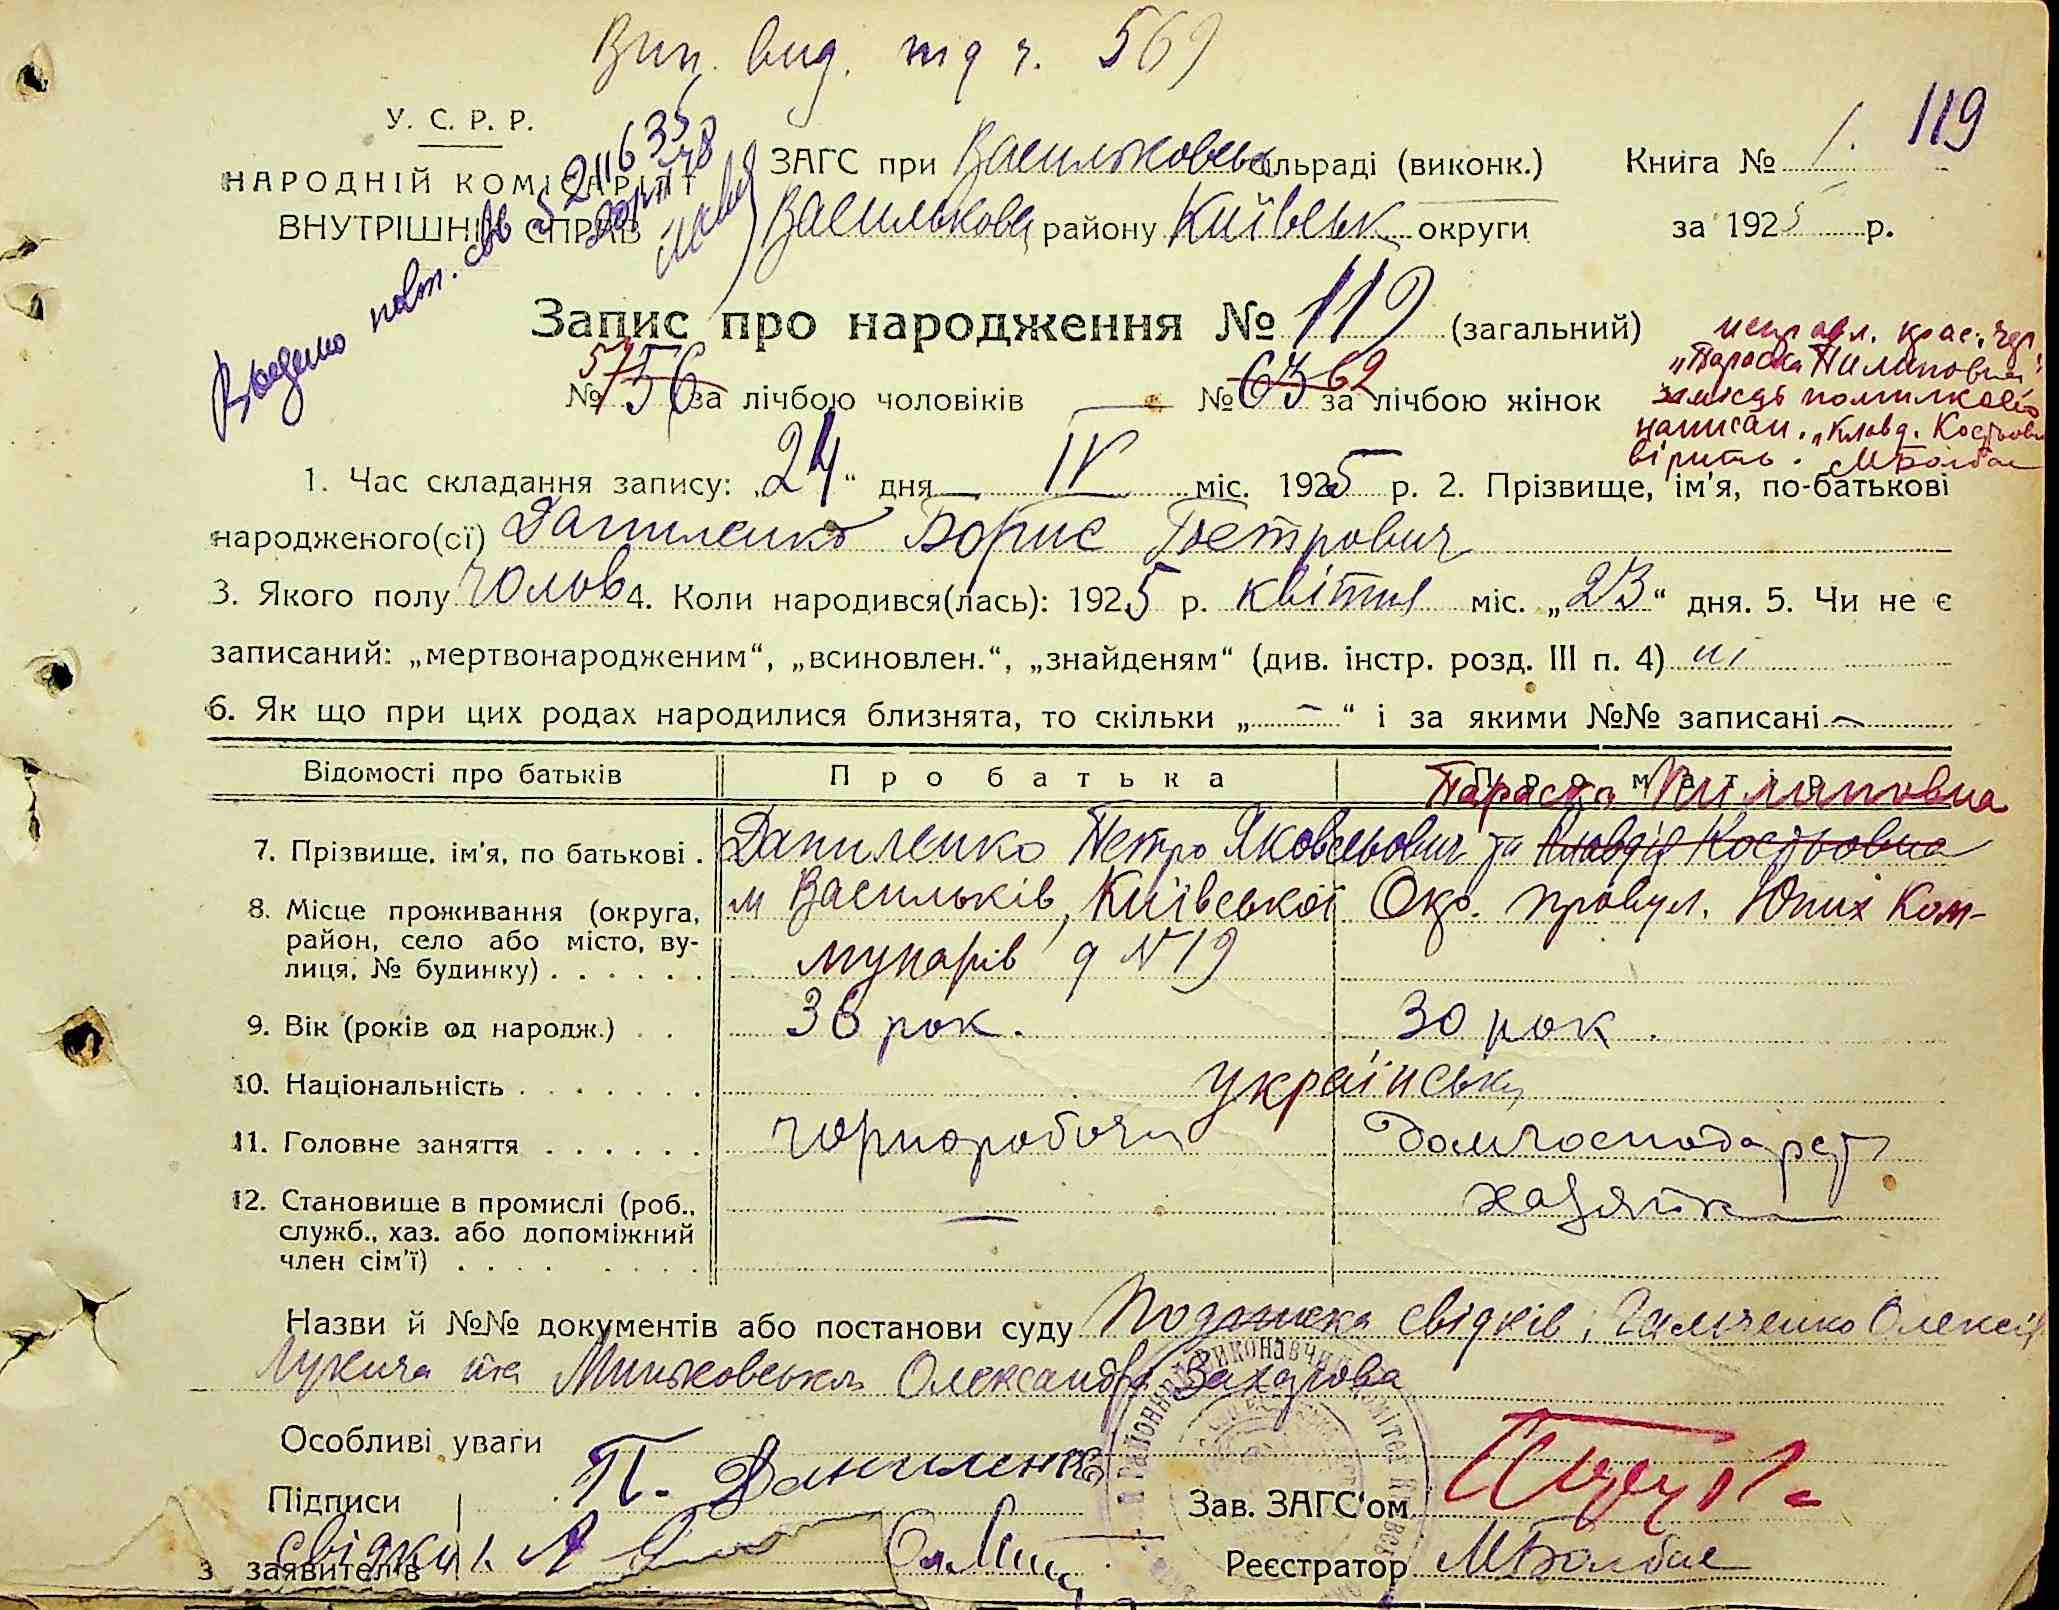 Вип. вид. під ч. 569
119
У. С. Р. Р.
НАРОДНІЙ КОМІСАРІЯТ
ВНУТРІШНІХ СПРАВ
ЗАГС при Васильковськ сільраді (виконк.) Книга № 1.
Васильков району Київськ округи за 1925 р.
Видано повт. свід 2116335
Запис про народження № 119 (загальний)
№ 57 56 за лічбою чоловіків № 63 62 за лічбою жінок
исправл. крас. чер.
„Параска Пилиповна"
замісць помилково
написан. „Клавд. Костьовн
вірить. МБолбас
1. Час складання запису: „24" дня IV міс. 1925 р. 2. Прізвище, ім'я, по-батькові
народженого(сї) Даниленко Борис Петрович
3. Якого полу чолов 4. Коли народився(лась): 1925 р. квітня міс. „23" дня. 5. Чи не є
записаний: „мертвонародженим", „всиновлен.", „знайденям" (див. інстр. розд. III п. 4) ні
6. Як що при цих родах народилися близнята, то скільки „ — " і за якими №№ записані —
Відомості про батьків Про батька Про матір
Параска Пилиповна
7. Прізвище, ім'я, по батькові . Даниленко Петро Яковельович та Клавдія Костьовна
8. Місце проживання (округа, м Васильків, Київської Окр. провул. Юних Ком-
район, село або місто, ву- мунарів д N 19
лиця, № будинку) . . . . . .
9. Вік (років од народж.) . . 36 рок. 30 рок.
10. Національність . . . . . . . українськ
11. Головне заняття . . . . . . чорноробочи Домгосподарст
12. Становище в промислі (роб., — хазяйка
служб., хаз. або допоміжний
член сім'ї) . . . . . . . .
Назви й №№ документів або постанови суду свідків, Гальченко Олексій
Лукича та Миньковська Олександра Захарова
Особливі уваги
Підписи П. Даниленко Зав. ЗАГС'ом
свідки 1.
3 заявителів Реєстратор МБолбас